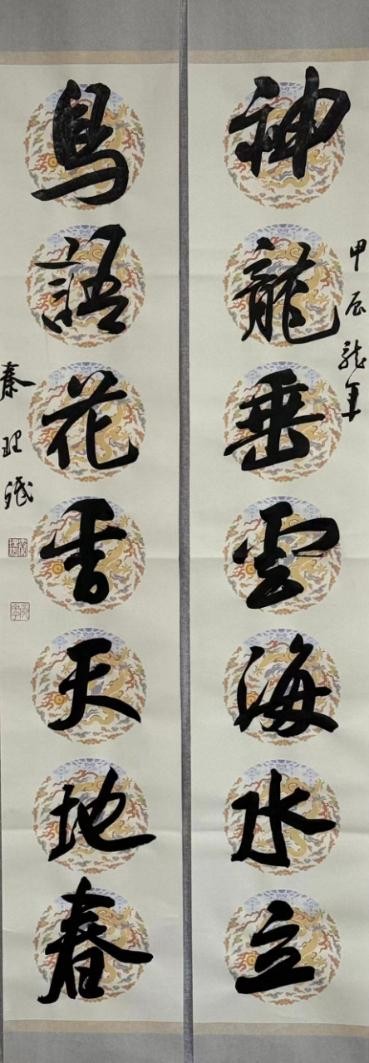 神龍垂雲海水立
甲辰龍年
鳥語花香天地春
秦理